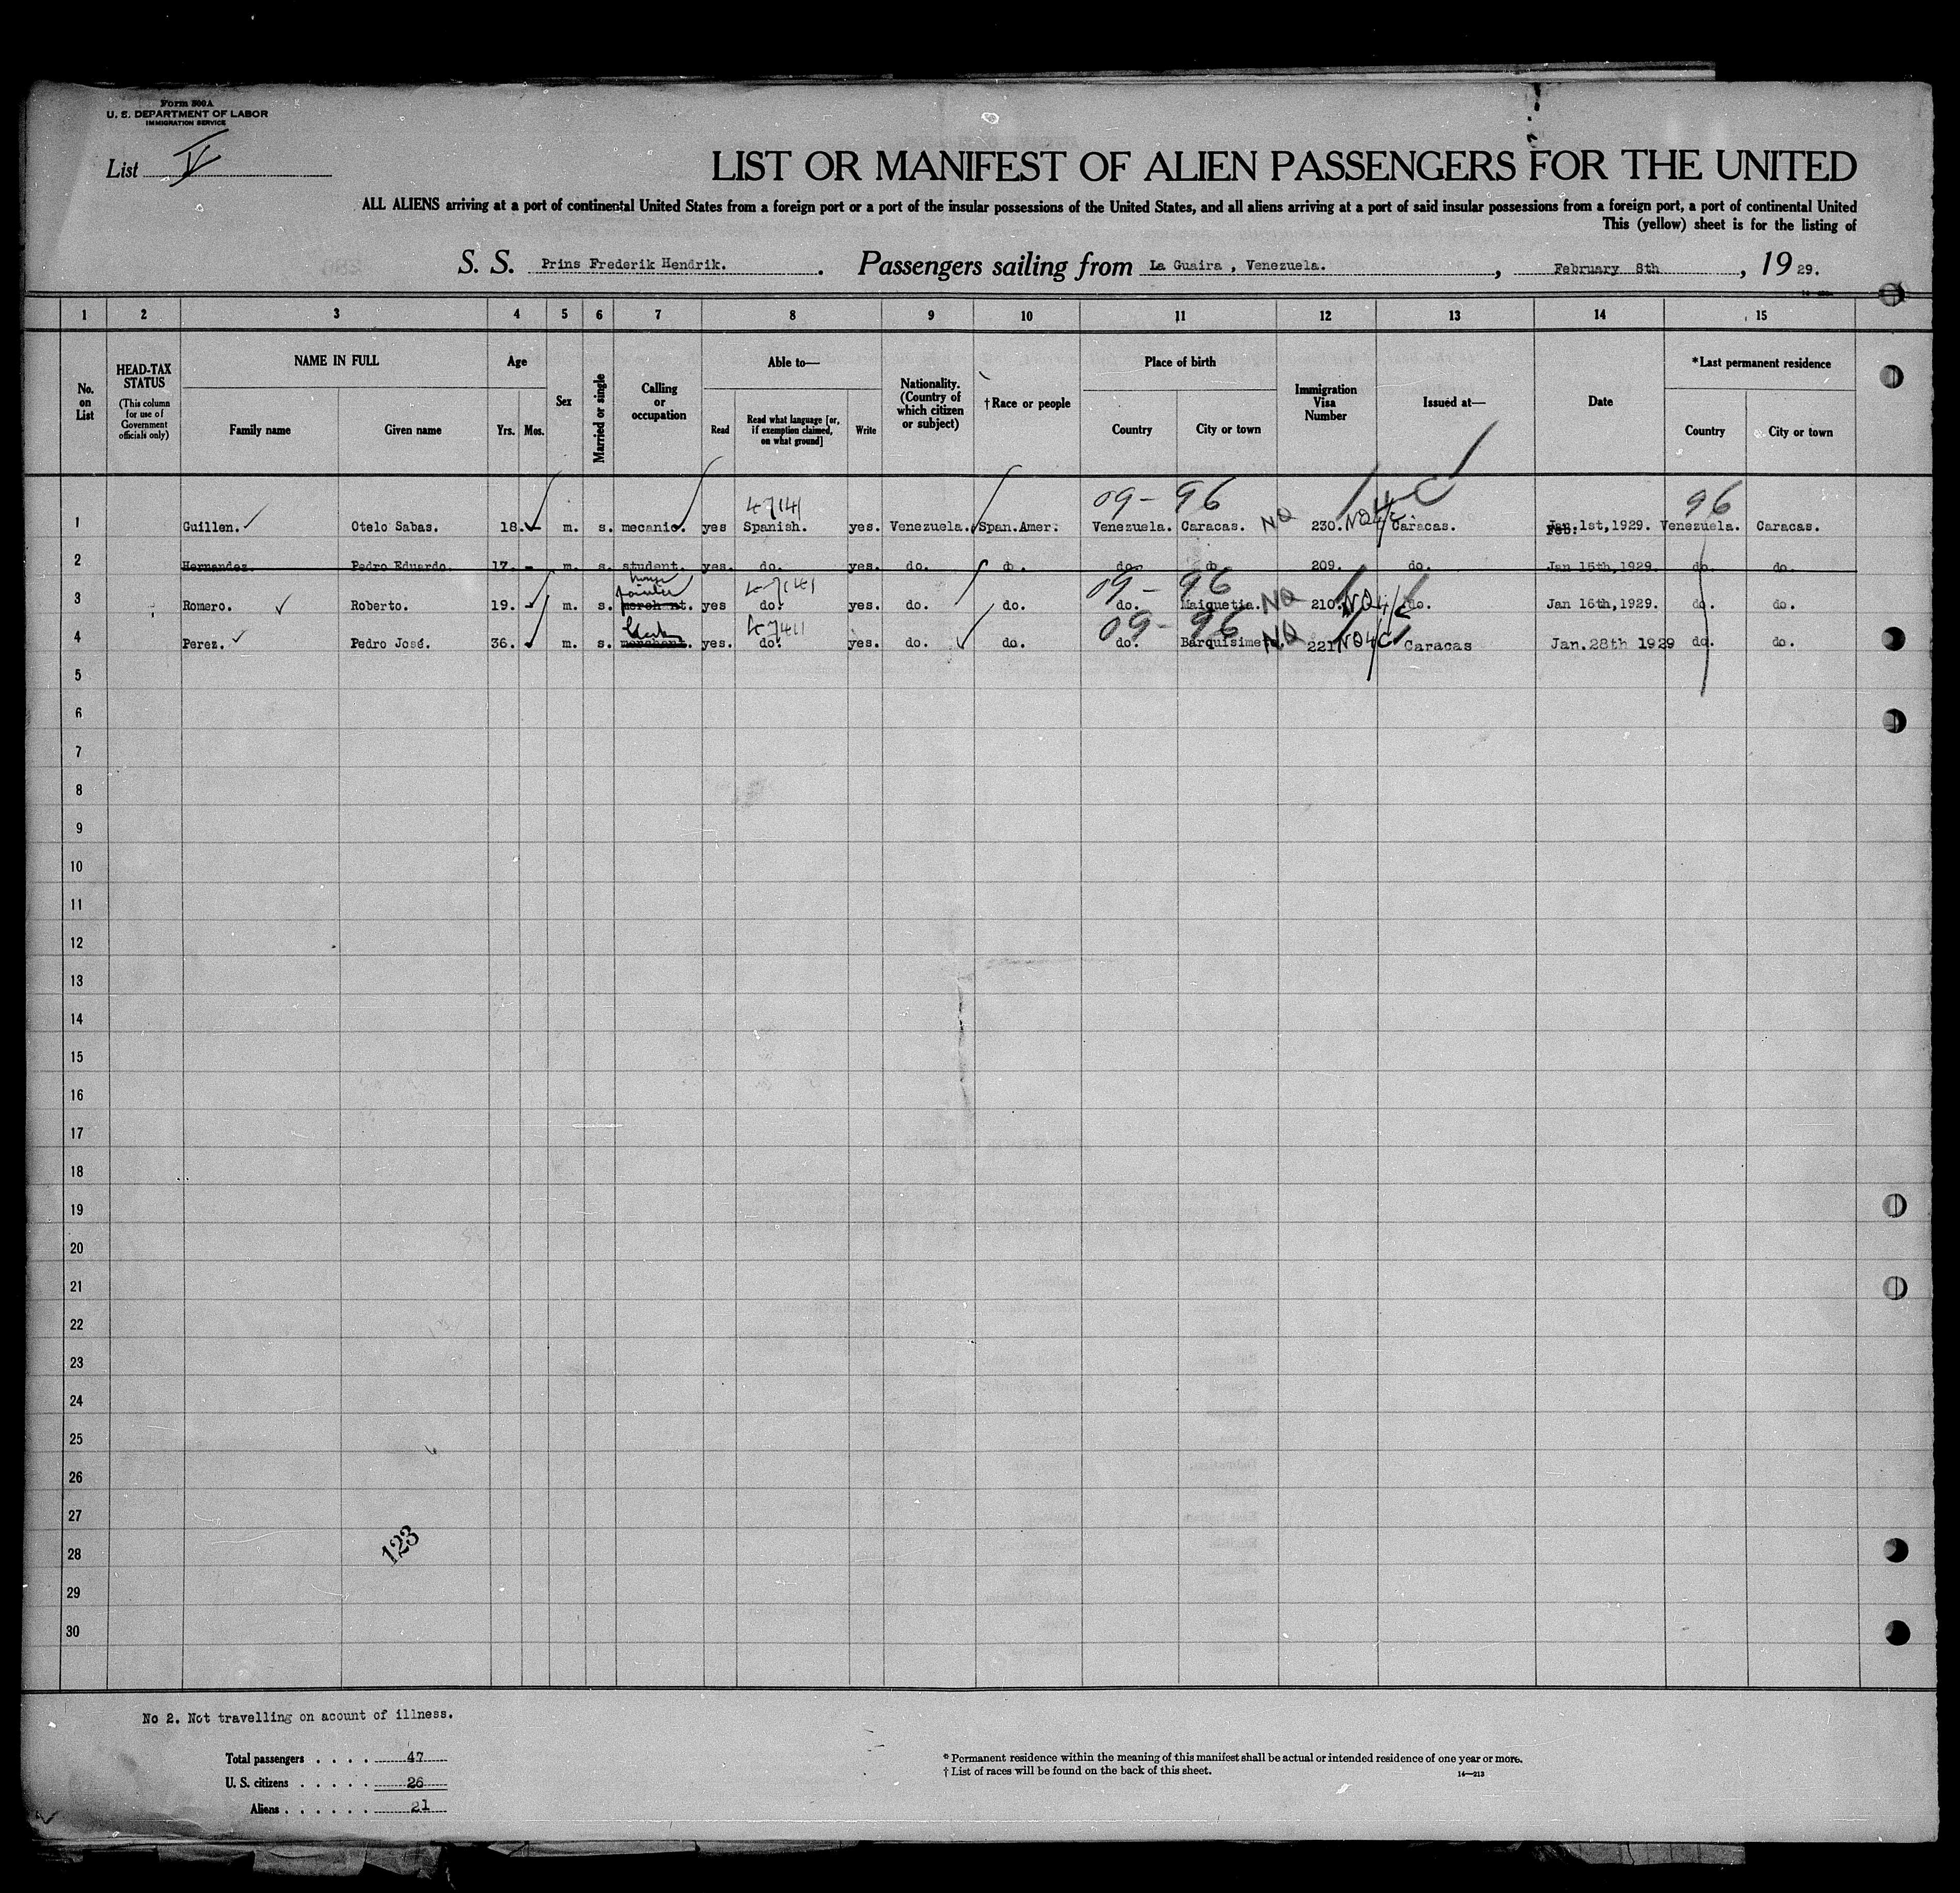 Form 500A
U. S. DEPARTMENT OF LABOR
IMMIGRATION SERVICE
List V
LIST OR MANIFEST OF ALIEN PASSENGERS FOR THE UNITED
ALL ALIENS arriving at a port of continental United States from a foreign port or a port of the insular possessions of the United States, and all aliens arriving at a port of said insular possessions from a foreign port, a port of continental United
This (yellow) sheet is for the listing of
S. S. Prins Frederik Hendrik. . Passengers sailing from La Guaira , Venezuela. , February 8th , 19 29.
1 2 3 4 5 6 7 8 9 10 11 12 13 14 15
No. on List
HEAD-TAX STATUS (This column for use of Government officials only)
NAME IN FULL
Family name Given name
Age
Yrs. Mos.
Sex
Married or single
Calling or occupation
Able to—
Read Read what language [or, if exemption claimed, on what ground] Write
Nationality. (Country of which citizen or subject)
†Race or people
Place of birth
Country City or town
Immigration Visa Number
Issued at—
Date
*Last permanent residence
Country City or town
09 - 96 96
1 Guillen. Otelo Sabas. 18. - m. s. mecanic. yes Spanish. yes. Venezuela. Span.Amer. Venezuela. Caracas. NQ 230. NQ 4/c Caracas. 1st,1929. Venezuela. Caracas.
2 Hernandez. Pedro Eduardo. 17. - m. s. student. yes. do. yes. do. do. do. do 209. do. Jan 15th,1929. do. do.
painter 09 - 96
3 Romero. Roberto. 19. - m. s. merchant. yes do. yes. do. do. do. Maiquetia. NQ 210. NQ 4/c do. Jan 16th,1929. do. do.
Clerk 09 - 96
4 Perez. Pedro José. 36. - m. s. merchant. yes. do. yes. do. do. do. Barquisimeto. NQ 221 NQ 4/c Caracas Jan.28th 1929 do. do.
5
6
7
8
9
10
11
12
13
14
15
16
17
18
19
20
21
22
23
24
25
26
27
28
29
30
123
No 2. Not travelling on acount of illness.
Total passengers . . . . 47
U. S. citizens . . . . . 26
Aliens . . . . . . 21
* Permanent residence within the meaning of this manifest shall be actual or intended residence of one year or more.
† List of races will be found on the back of this sheet.
14—213